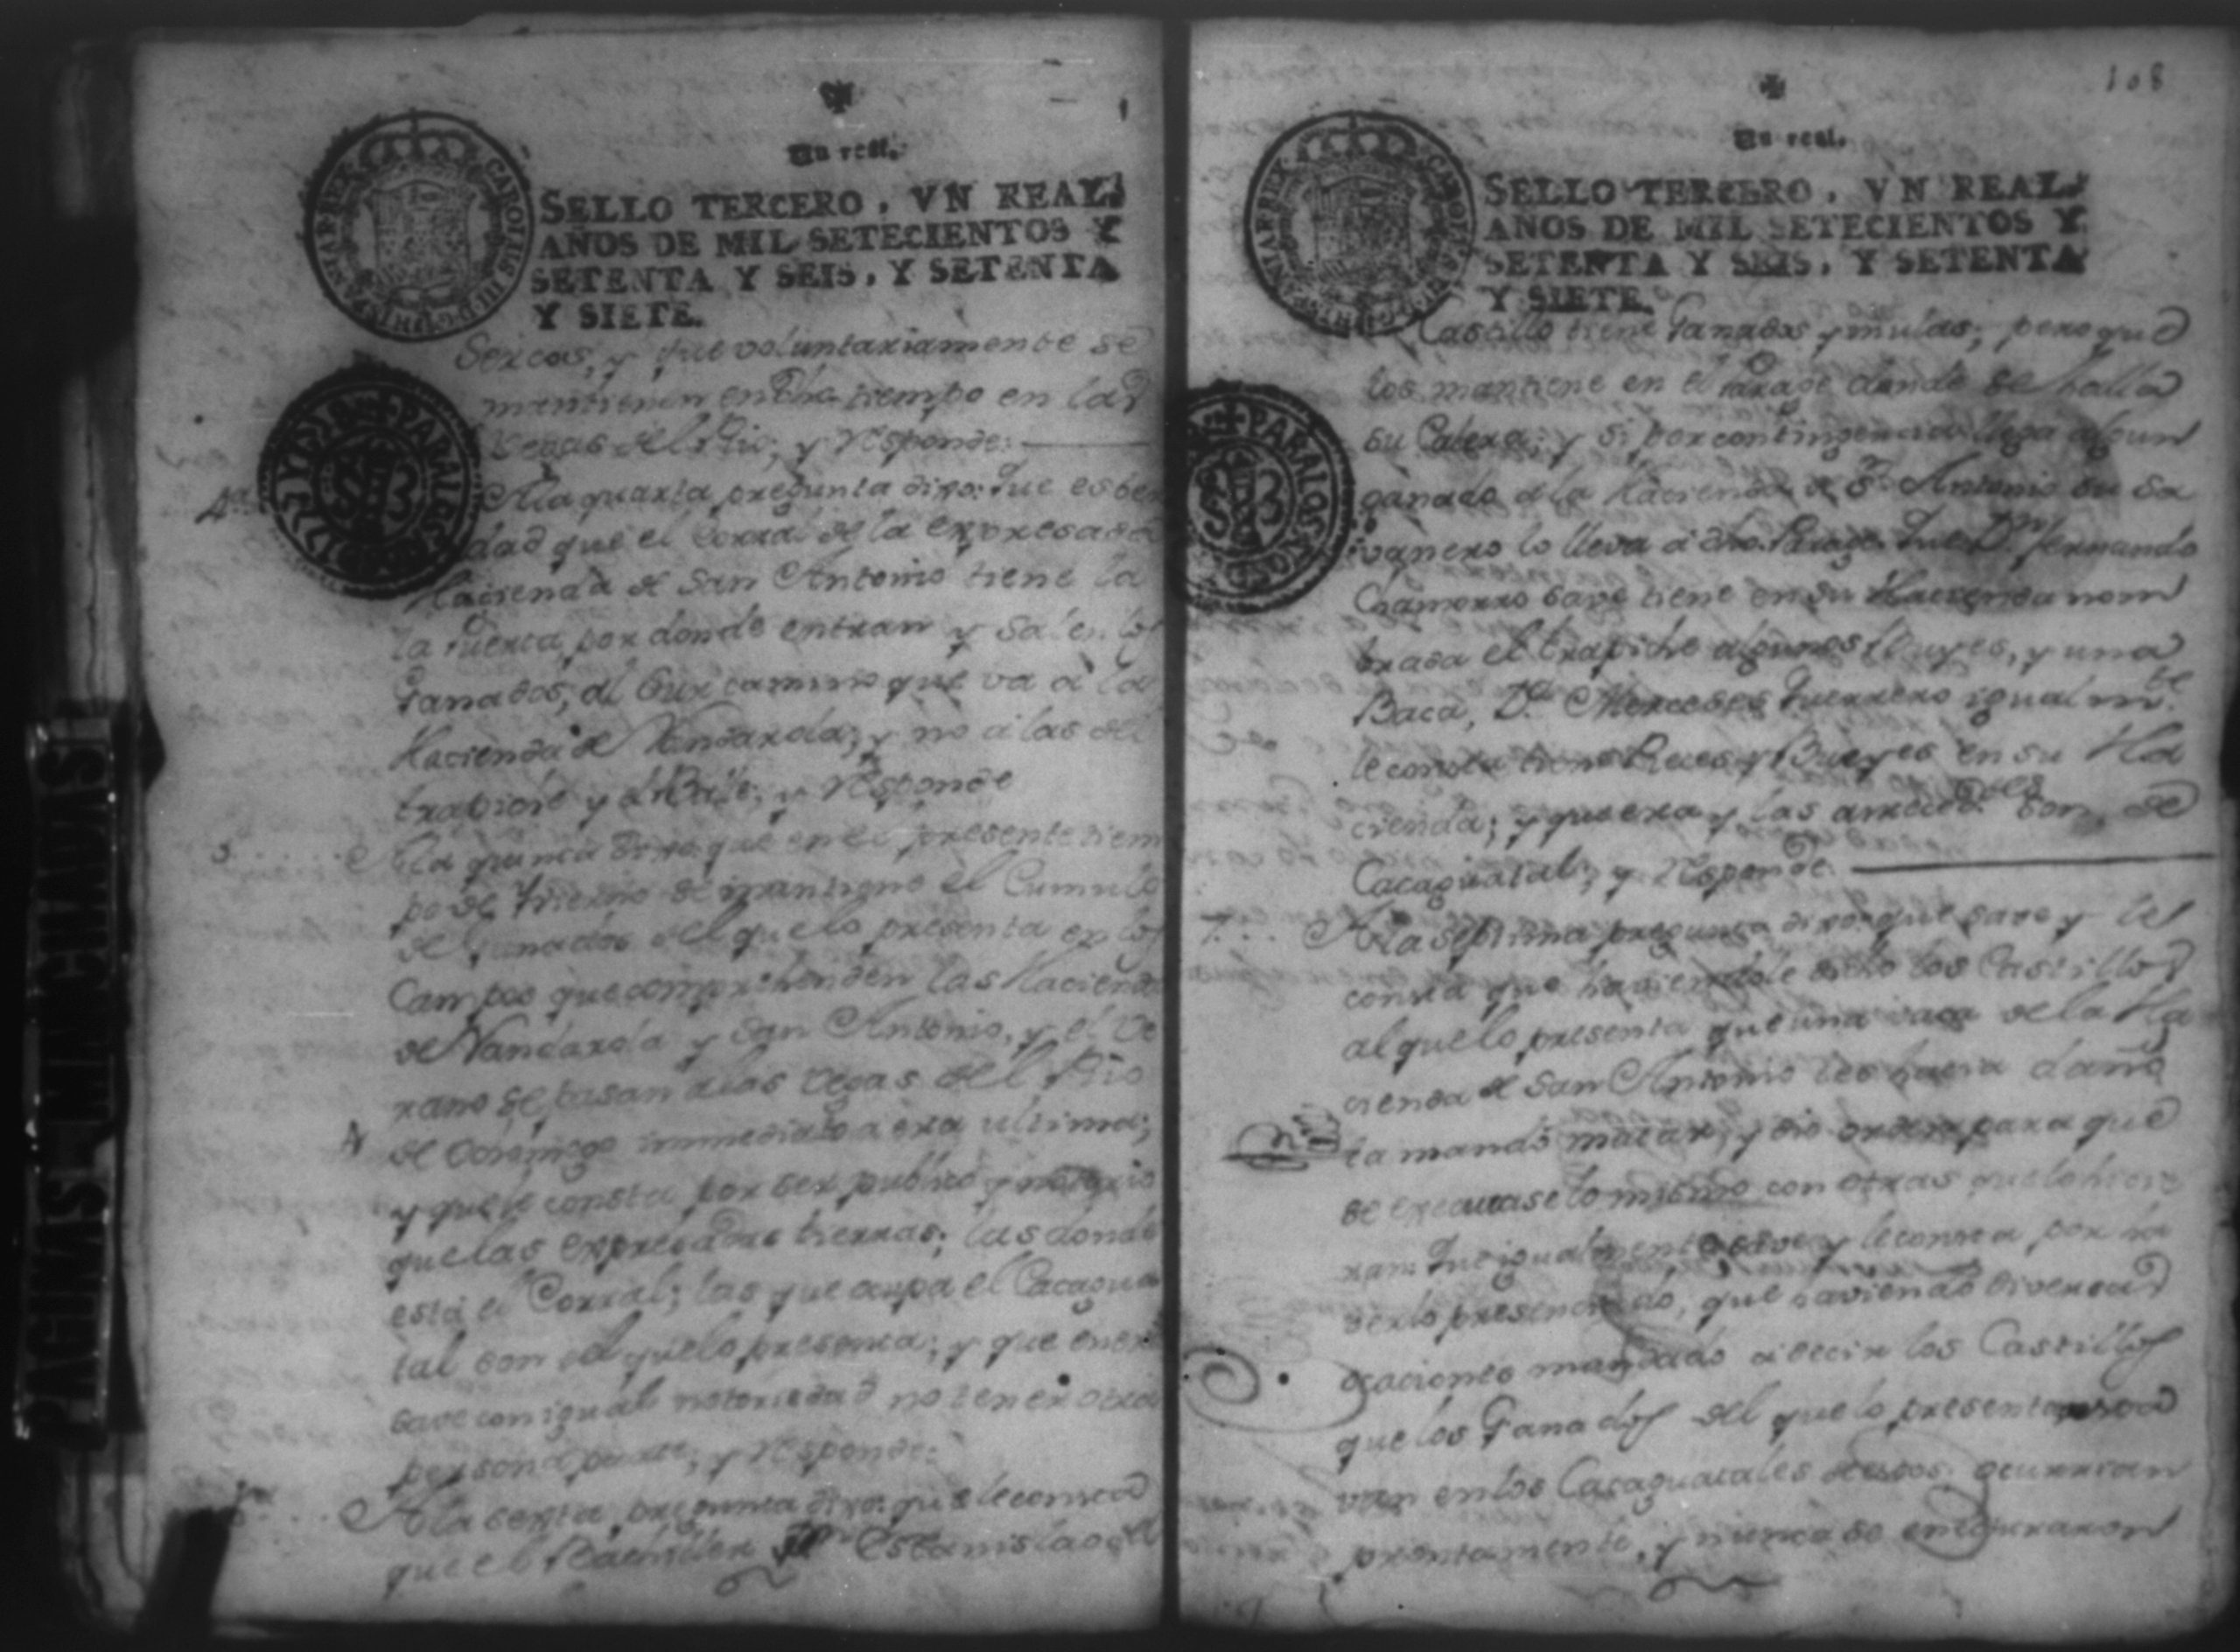 Un real.
SELLO TERCERO, VN REAL,
AÑOS DE MIL SETECIENTOS Y
SETENTA Y SEIS, Y SETENTA
Y SIETE.
Sercas, y que voluntariamente se
mantienen en dho. tiempo en las
Vegas del Rio; y responde:
4ª
A la quarta pregunta dixo: Que es ber
dad que el Corral de la expresada
Hacienda de San Antonio tiene la
la Puerta por donde entran y salen los
Ganados, al camino que va a la
Hacienda de Nandarola; y no a las del
trapiche y responde
5
A la quinta dixo que en el presente tiem
po de se mantiene el Cumulo
de Ganados del que lo presenta en los
Campos que comprehenden las Hacienda
de Nandarola y San Antonio, y el Ve
rano se pasan a las Vegas del Rio
de inmediato a esta ultima;
y que le consta por ser publico y notorio
que las expresadas tierras; las donde
está el Corral; las que ocupa el Cacagua
tal son del que lo presenta; y que
save con igual notoriedad no tener otra
persona parte; y responde:
6
A la sexta pregunta dixo: que le consta
que el Bachiller Dn. Estanislao del
108
Un real.
SELLO TERCERO, VN REAL,
AÑOS DE MIL SETECIENTOS Y
SETENTA Y SEIS, Y SETENTA
Y SIETE.
Castillo tiene Ganados y mulas; pero que
los mantiene en el Parage donde se halla
su Calera; y si por contingencia llega algun
ganado a la Hacienda de Sn. Antonio su Sa
vanero lo lleva a dho. Parage. Que Dn. Fernando
Chamorro save tiene en su Hacienda nom
brada el trapiche algunos Bueyes, y una
Baca, Da. Mercedes Guerrero igualmte.
le consta tiene Reces y Bueyes en su Ha
cienda; y que esta y las son de
Cacaguatal; y responde.
7
A la septima pregunta dixo: que save y le
consta que haviendole dicho los Castillos
al que lo presenta que una vaca de la Ha
cienda de San Antonio les hacia daño
la mandó matar, y dio orden para que
se executase lo mismo con otras que lo hicie
ran. Que igualmente save y le consta por ha
verlo presenciado, que haviendo diversas
ocaciones mandado a decir los Castillos
que los Ganados del que lo presenta
van en los Cacaguatales de estos, ocurrian
prontamente, y nunca se encontraron
PARA LOS
CAROLUS III
PAGINAS MANCHADAS